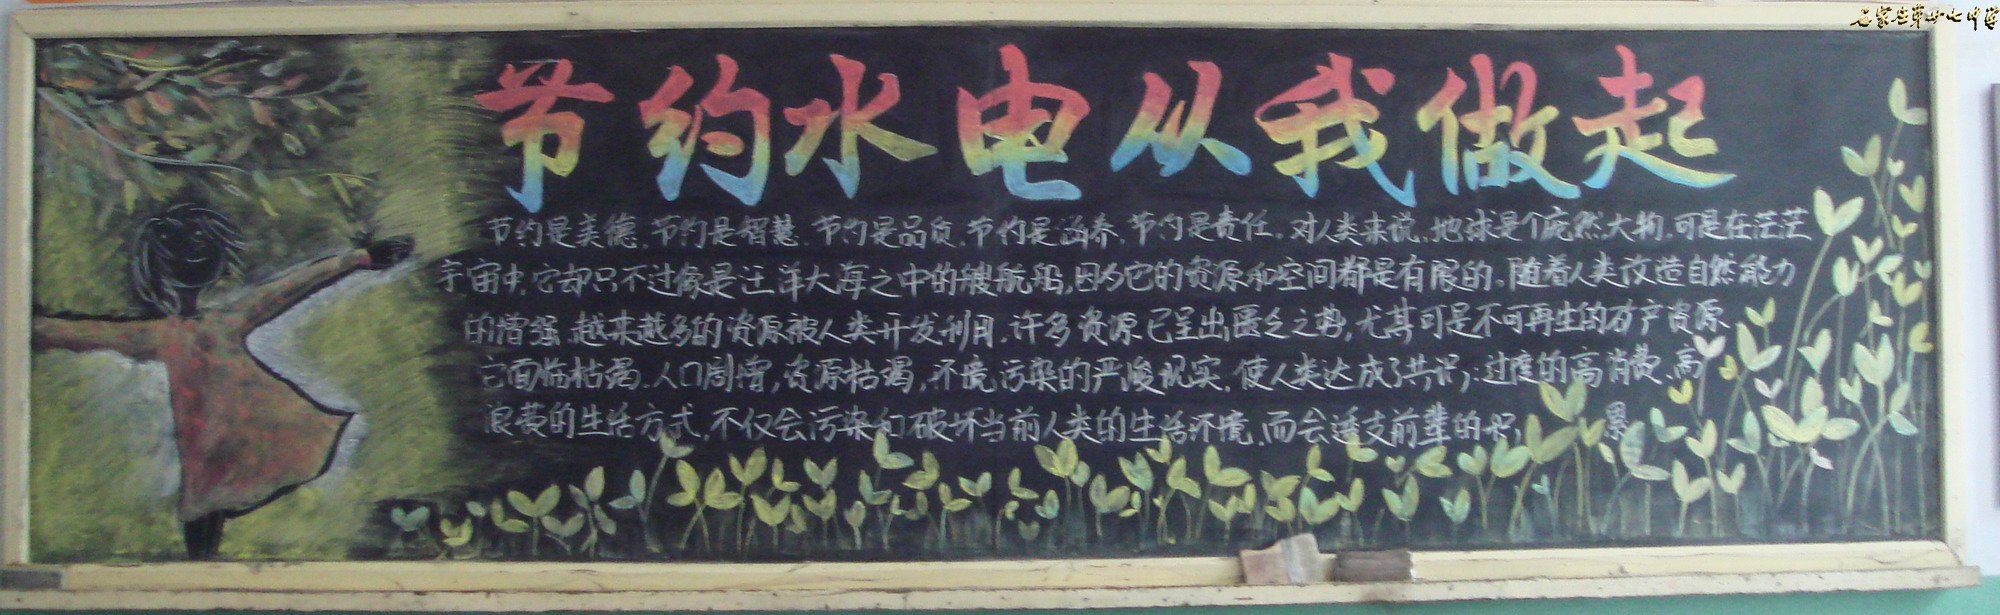 石家庄第四十七中学
节约水电从我做起
节约是美德,节约是智慧,节约是品质,节约是涵养,节约是责任。对人类来说,地球是个庞然大物,可是在茫茫
宇宙中,它却只不过像是汪洋大海之中的艘航船,因为它的资源和空间都是有限的。随着人类改造自然能力
的增强,越来越多的资源被人类开发利用,许多资源已呈出匮乏之势,尤其可是不可再生的矿产资源
它面临枯竭。人口剧增,资源枯竭,环境污染的严峻现实,使人类达成了共识:过度的高消费、高
浪费的生活方式,不仅会污染和破坏当前人类的生活环境,而会透支前辈的积累